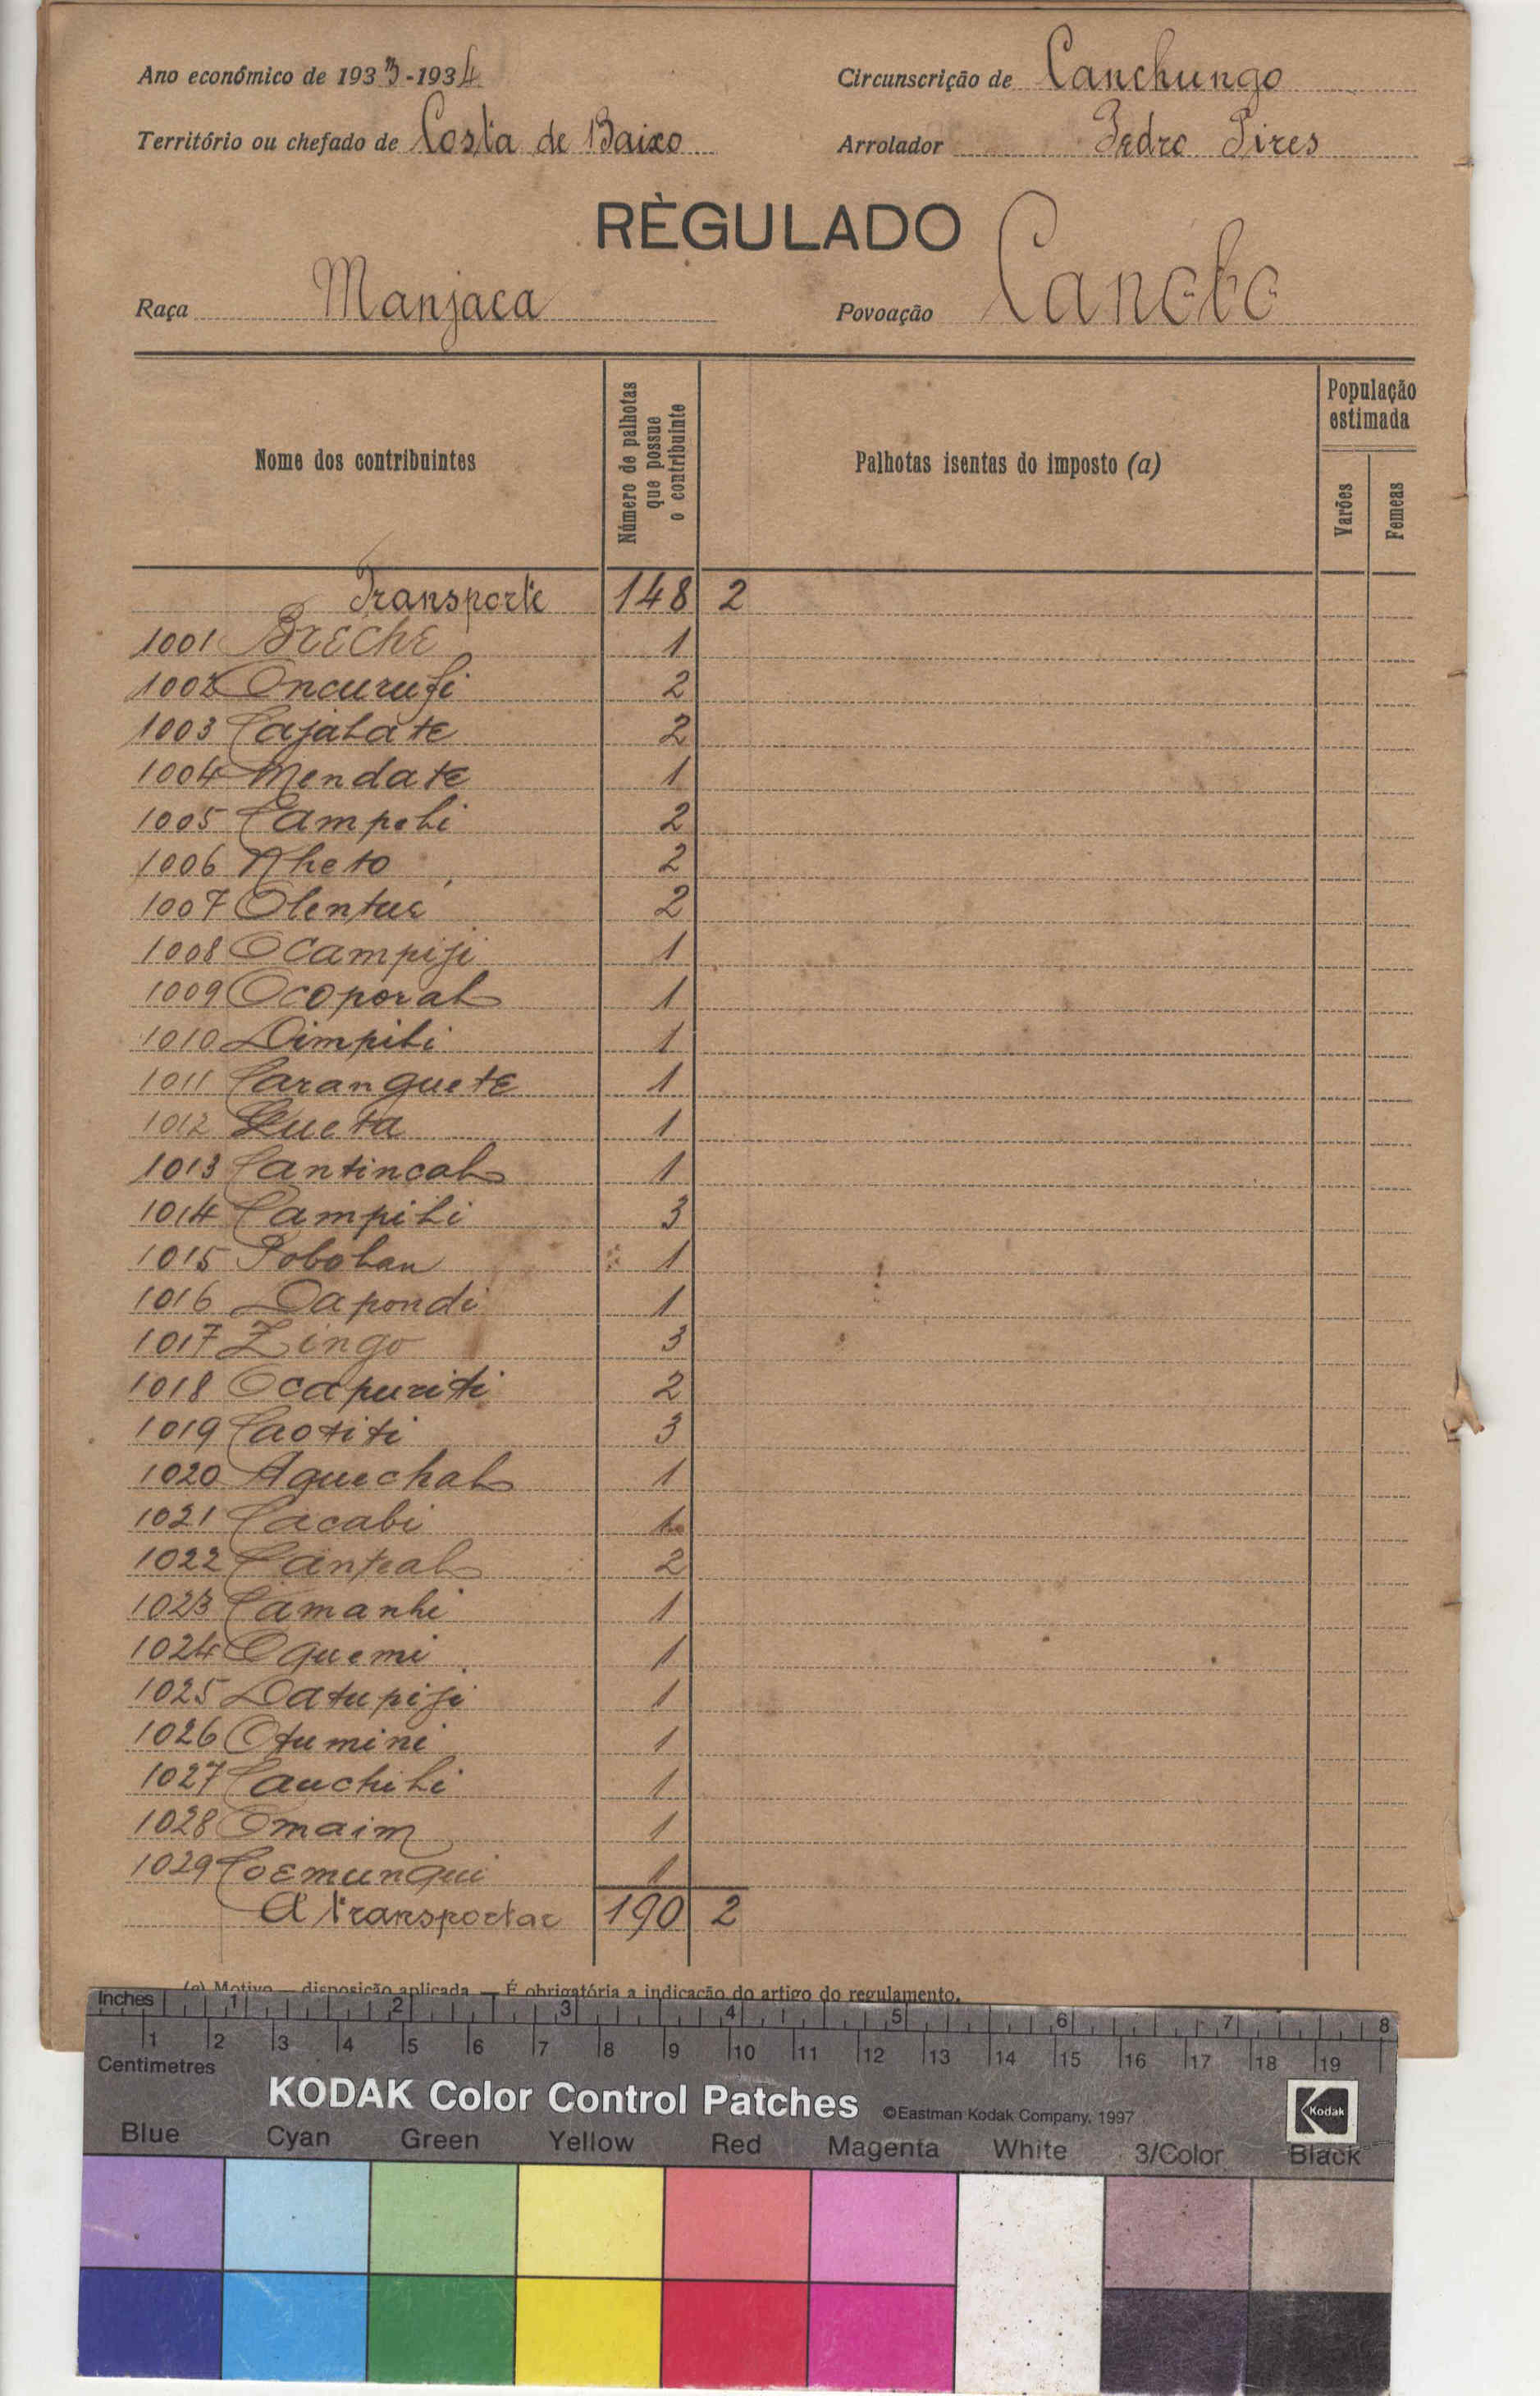 Ano económico de 1933-1934 Circunscrição de Canchungo
Território ou chefado de Costa de Baixo Arrolador Pedro Pires
RÈGULADO
Raça Manjaca Povoação Canobe
Nome dos contribuintes
Número de palhotas que possue o contribuinte
Palhotas isentas do imposto (a)
População estimada
Varões
Femeas
Transporte 148 2
1001 Breche 1
1002 Oncurufi 2
1003 Cajalate 2
1004 Mendate 1
1005 Campeli 2
1006 Nheto 2
1007 Olentue 2
1008 Ocampiji 1
1009 Ocoporal 1
1010 Dimpili 1
1011 Caranguete 1
1012 Queta 1
1013 Cantincal 1
1014 Campili 3
1015 Pobolan 1
1016 Dapondi 1
1017 Zingo 3
1018 Ocapuriti 2
1019 Caotiti 3
1020 Aguechal 1
1021 Cacabi 1
1022 Canteal 2
1023 Camanhi 1
1024 Oquemi 1
1025 Datupiji 1
1026 Otumini 1
1027 Cauchili 1
1028 Omaim 1
1029 Coemunqui 1
A transportar 190 2
(a) Motivo — disposição aplicada — É obrigatória a indicação do artigo do regulamento.
Inches 1 2 3 4 5 6 7 8
1 2 3 4 5 6 7 8 9 10 11 12 13 14 15 16 17 18 19
Centimetres
KODAK Color Control Patches ©Eastman Kodak Company, 1997 Kodak
Blue Cyan Green Yellow Red Magenta White 3/Color Black